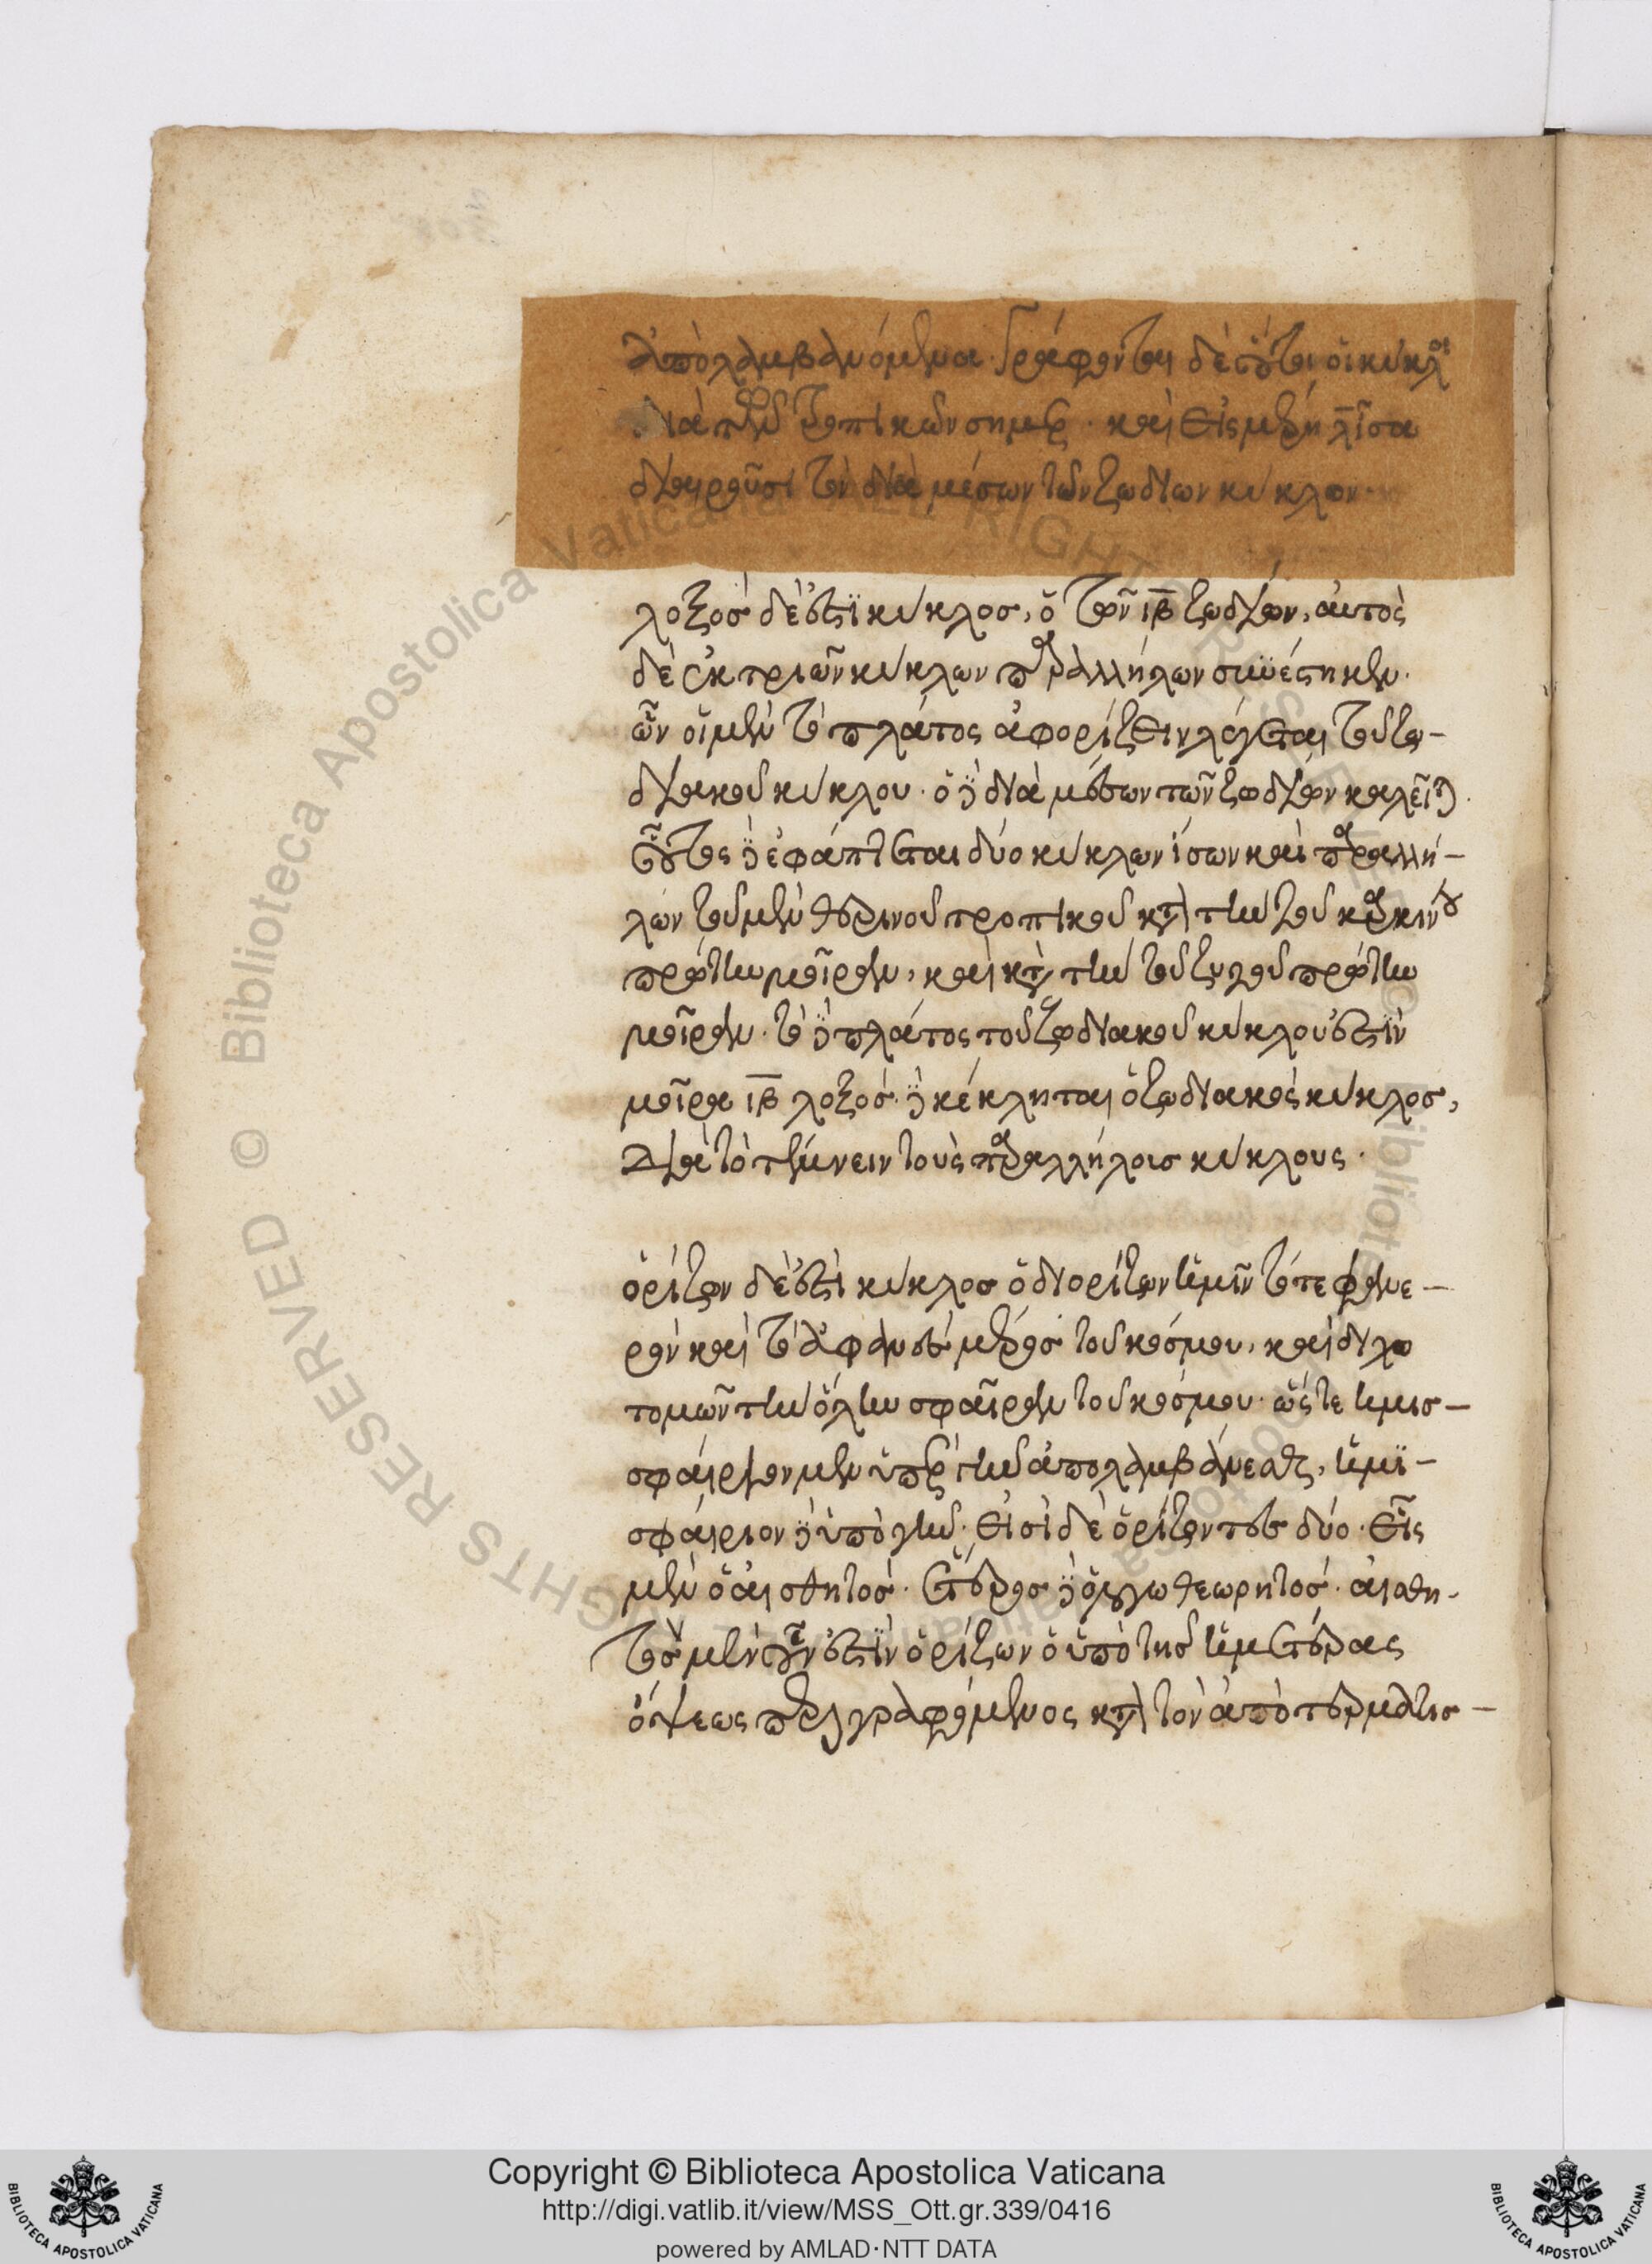 ἀπολαμβανόμενα. Γράφονται δὲ οὗτοι οἱ κύκλοι
διὰ τῶν τροπικῶν σημείων. καὶ εἰς μέρη δ ἴσα
διαιροῦσι τὸν διὰ μέσων τῶν ζωδίων κύκλον.
λοξὸσ δέ ἐστϊ κύκλοσ, ὁ τῶν ιβ ζωδίων, αυτὸς
δὲ ἐκ τριῶν κύκλων παραλλήλων συνέστηκεν.
ὧν οἱ μὲν τὸ πλάτος ἀφορίζειν λέγεται τοῦ ζω-
διακοῦ κύκλου. ὁ δὲ διὰ μέσων τῶν ζωδίων καλεῖται.
οὗτος δὲ ἐφάπτεται δύο κύκλων ἴσων καὶ παραλλή-
λων τοῦ μὲν θερινοῦ τροπικοῦ κατὰ τὴν τοῦ καρκίνου
πρώτην μοῖραν, καὶ κατὰ τὴν τοῦ ζυγοῦ πρώτην
μοῖραν. τὸ δὲ πλάτος τοῦ ζωδιακοῦ κύκλου ἐστϊν
μοῖρα ιβ λοξὸσ δὲ κέκληται ὁ ζωδιακὸς κύκλοσ,
Διὰ τὸ τέμνειν τοὺς παραλλήλοισ κύκλους.
ὁρίζων δέ ἐστὶ κύκλοσ ὁ διορίζων ἡμῖν τό τε φανε-
ρὸν καὶ τὸ ἀφανὲσ μέροσ τοῦ κόσμου, καὶ διχο
τομῶν τὴν ὅλην σφαῖραν τοῦ κόσμου. ὥστε ἡμισ-
σφαίριον μὲν ὑπὲρ γῆν ἀπολαμβάνεσθαι, ἡμϊ-
σφαίριον δὲ ὑπὸ γῆν. εἰσὶ δὲ ὁρίζοντεσ δύο. εἷς
μὲν ὁ αἰσθητόσ. ἕτεροσ δὲ ὁ λόγω θεωρητόσ. αἰσθη-
τὸσ μὲν οὖν ἐστϊν ὁρίζων ὁ ὑπὸ τῆσ ἡμετέρας
ὄψεως περιγραφόμενος κατὰ τὸν ἀποτερματισ-
Copyright © Biblioteca Apostolica Vaticana
http://digi.vatlib.it/view/MSS_Ott.gr.339/0416
powered by AMLAD·NTT DATA
BIBLIOTECA APOSTOLICA VATICANA
BIBLIOTECA APOSTOLICA VATICANA